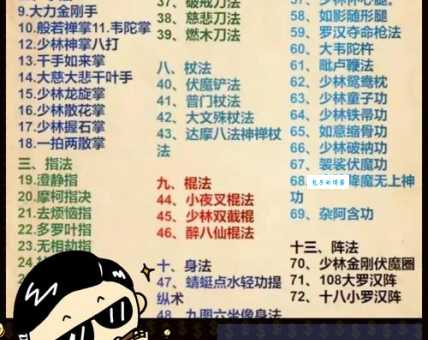 9.大力金刚手
10.般若禅掌11.韦陀掌
12.少林神掌八打
13.千手如来掌
14.大慈大悲千叶手
15.少林龙旋掌
16.少林散花掌
17.少林握石掌
18.一拍两散掌
三、指法
19.澄静指
20.摩柯指决
21.去烦恼指
22.多罗叶指
23.无相劫指
37、破戒刀法
38、慈悲刀法
39、燃木刀法
八、杖法
40、伏魔铲法
41、普门杖法
42、大文殊杖法
43、达摩八法神禅杖
法
九、棍法
44、小夜叉棍法
45、少林双截棍
46、醉八仙棍法
十、身法
47、蜻蜓点水轻功提
纵术
48、九围六坐像身法
58、如影随形腿
59、罗汉夺命枪法
60、大韦陀杵
61、毗卢鞭法
62、少林鸳鸯枕
63、少林童子功
64、少林铁吊功
65、如意缩骨功
66、少林破衲功
67、袈裟伏魔功
68、降魔无上神
功
69、杂阿含功
十三、阵法
70、少林金刚伏魔圈
71、108大罗汉阵
72、十八小罗汉阵